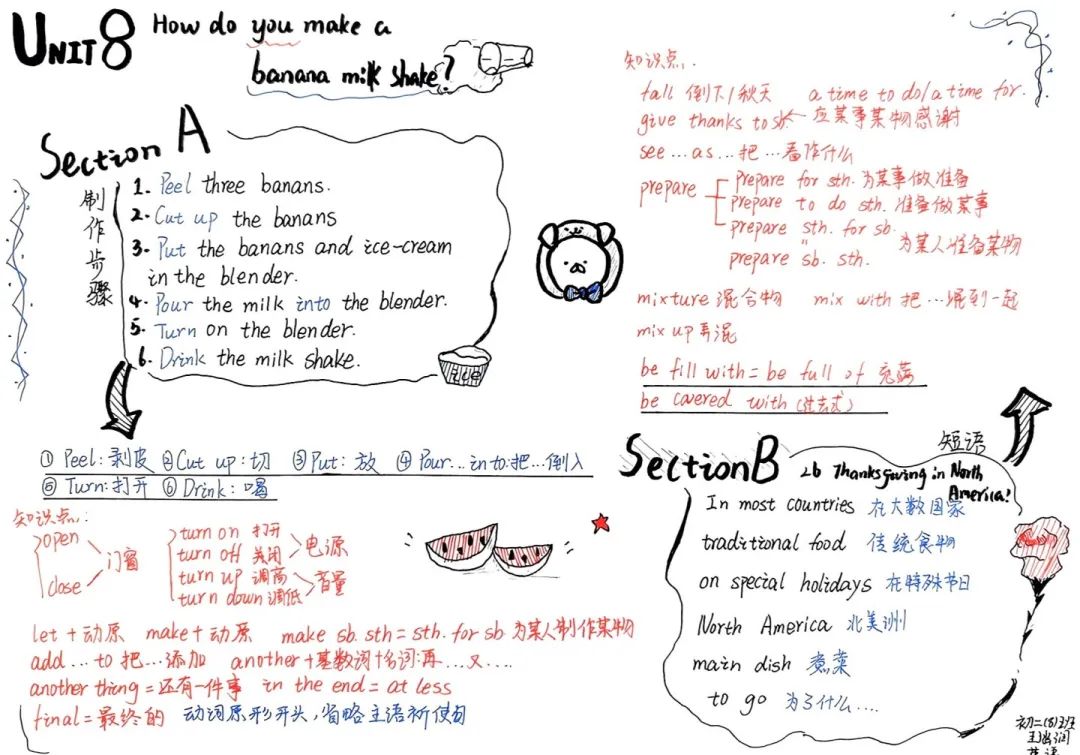 UNIT 8 How do you make a
banana milk shake?
Section A
制作步骤
1. Peel three banans.
2. Cut up the banans
3. Put the banans and ice-cream
in the blender.
4. Pour the milk into the blender.
5. Turn on the blender.
6. Drink the milk shake.
① Peel: 剥皮 ② Cut up: 切 ③ Put: 放 ④ Pour...in to: 把...倒入
⑤ Turn: 打开 ⑥ Drink: 喝
知识点:
open
close
门窗
turn on 打开
turn off 关闭
电源
turn up 调高
turn down 调低
音量
let + 动原 make + 动原 make sb. sth = sth. for sb. 为某人制作某物
add ... to 把...添加 another + 基数词 + 名词: 再...又...
another thing = 还有一件事 in the end = at less
final = 最终的 动词原形开头, 省略主语祈使句
知识点:
fall 倒下/秋天 a time to do/a time for.
give thanks to sb. 应某事某物感谢
see ... as ... 把 ... 看作什么
prepare
prepare for sth. 为某事做准备
prepare to do sth. 准备做某事
prepare sth. for sb.
prepare sb. sth.
为某人准备某物
mixture 混合物 mix with 把...混到一起
mix up 弄混
be fill with = be full of 充满
be covered with (过去式)
Section B
短语
2b Thanksgiving in North
America!
In most countries 在大数国家
traditional food 传统食物
on special holidays 在特殊节日
North America 北美洲
main dish 煮菜
to go 为了什么....
初二(8)班
英语